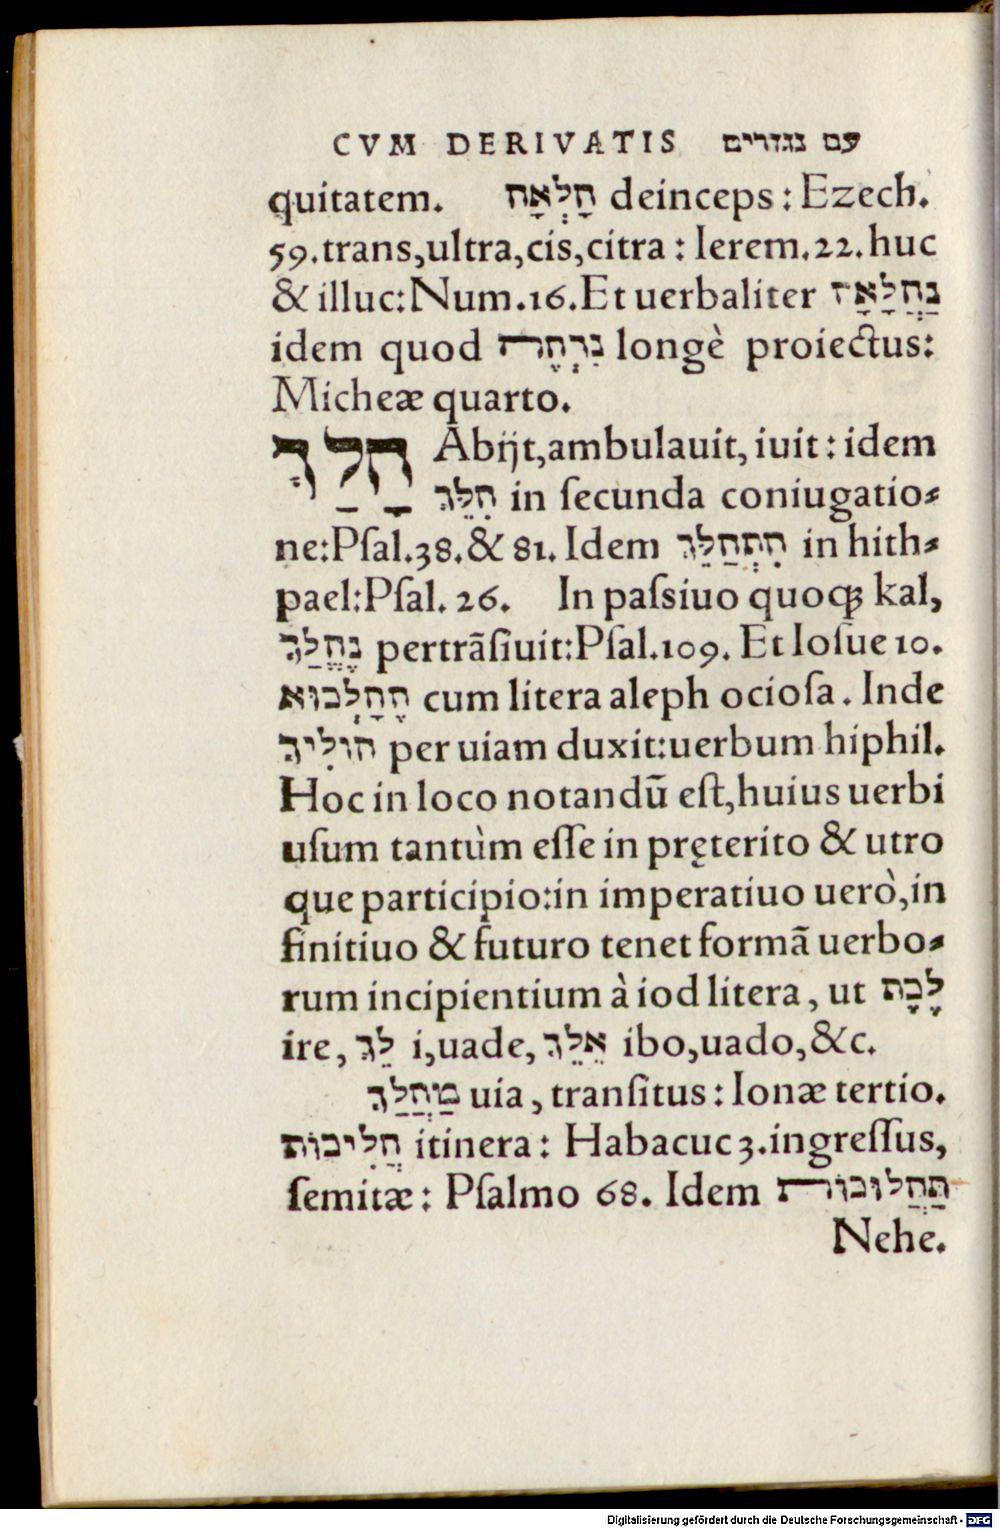 CVM DERIVATIS עם נגזרים
quitatem. הָלְאָה deinceps: Ezech.
59. trans, ultra, cis, citra: Ierem. 22. huc
& illuc: Num. 16. Et uerbaliter נַהֲלָאָה
idem quod נִרְחֶה longè proiectus:
Micheæ quarto.
הָלַךְ Abijt, ambulauit, iuit: idem
הִלֵּךְ in ſecunda coniugatio⸗
ne: Pſal. 38. & 81. Idem הִתְהַלֵּךְ in hith⸗
pael: Pſal. 26. In paſsiuo quoqꝫ kal,
נֶהֱלַךְ pertrāſiuit: Pſal. 109. Et Ioſue 10.
הֶהָלְכוּא cum litera aleph ocioſa. Inde
הוֹלִיךְ per uiam duxit: uerbum hiphil.
Hoc in loco notandū eſt, huius uerbi
uſum tantùm eſſe in pręterito & utro
que participio: in imperatiuo uerò, in
finitiuo & futuro tenet formā uerbo⸗
rum incipientium à iod litera, ut לָכָת
ire, לֵךְ i, uade, אֵלֵךְ ibo, uado, &c.
מַהֲלַךְ uia, tranſitus: Ionæ tertio.
הֲלִיכוֹת itinera: Habacuc 3. ingreſſus,
ſemitæ: Pſalmo 68. Idem תַּהֲלוּכוֹת
Nehe.
Digitalisierung gefördert durch die Deutsche Forschungsgemeinschaft - DFG